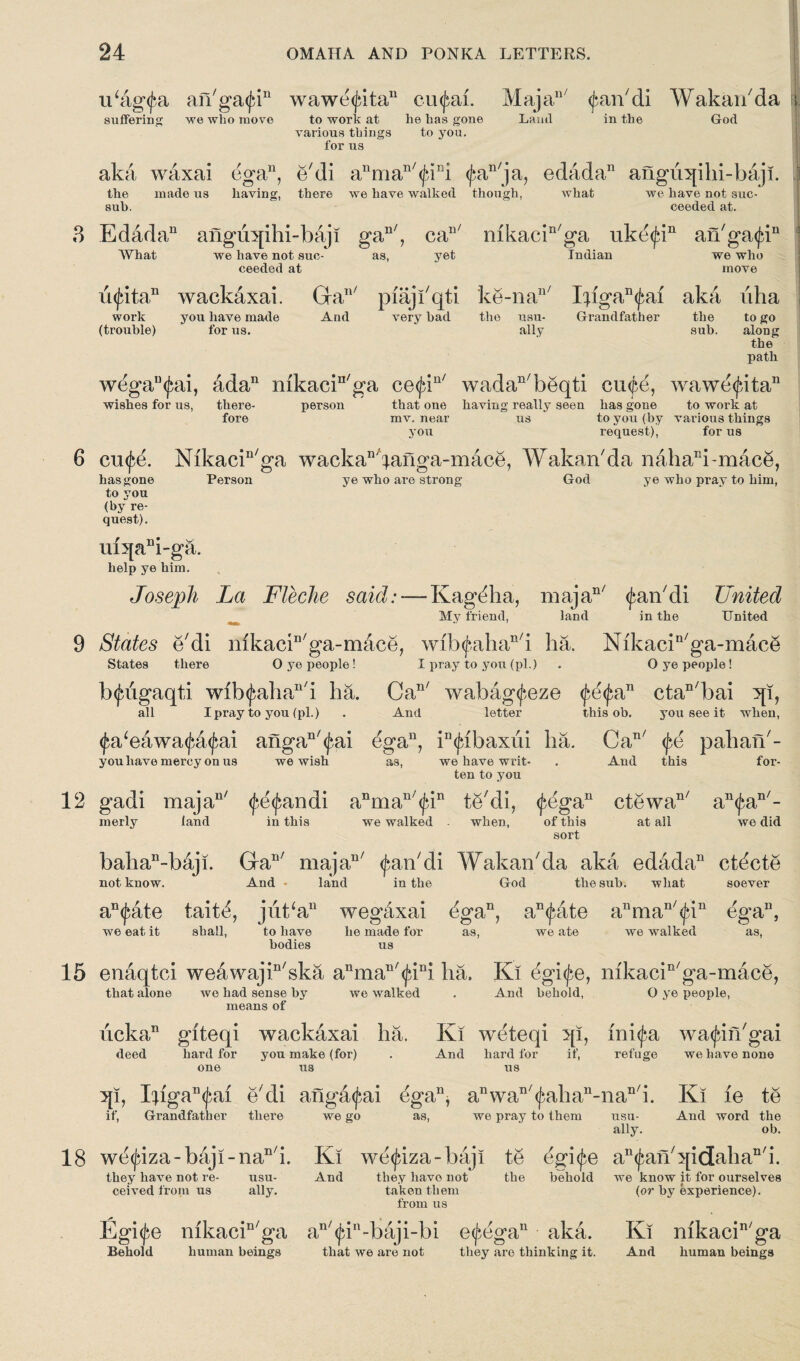 24 OMAHA AND PONKA LETTERS.
u‘ág¢a añ′ga¢iⁿ wawé¢itaⁿ cu¢aí. Majaⁿ′ ¢an′di Wakan′da
suffering we who move to work at he has gone Land in the God
various things to you.
for us
aká wáxai égaⁿ, ĕ′di aⁿmaⁿ′¢iⁿi ¢aⁿ′ja, edádaⁿ añgúʞihi-bájĭ.
the made us having, there we have walked though, what we have not suc-
sub. ceeded at.
3 Edádaⁿ añgúʞihi-bájĭ gaⁿ′, caⁿ′ níkaciⁿ′ga uké¢iⁿ añ′ga¢iⁿ
What we have not suc- as, yet Indian we who
ceeded at move
ú¢itaⁿ wackáxai. Gaⁿ′ píäjĭ′qti kĕ-naⁿ′ Iʇígaⁿ¢aí aká úha
work you have made And very bad the usu- Grandfather the to go
(trouble) for us. ally sub. along
the
path
wégaⁿ¢ai, ádaⁿ níkaciⁿ′ga ce¢iⁿ′ wadaⁿ′bĕqti cu¢é, wawé¢itaⁿ
wishes for us, there- person that one having really seen has gone to work at
fore mv. near us to you (by various things
you request), for us
6 cu¢é. Níkaciⁿ′ga wackaⁿ′ʇañga-mácĕ, Wakan′da náhaⁿi-mácĕ,
has gone Person ye who are strong God ye who pray to him,
to you
(by re-
quest).
uíʞaⁿi-gă.
help ye him.
Joseph La Flèche said:—Kagéha, majaⁿ′ ¢an′di United
My friend, land in the United
9 States ĕ′di níkaciⁿ′ga-mácĕ, wíb¢ahaⁿ′i hă. Níkaciⁿ′ga-mácĕ
States there O ye people! I pray to you (pl.) . O ye people!
b¢úgaqti wíb¢ahaⁿ′i hă. Caⁿ′ wabág¢eze ¢é¢aⁿ ctaⁿ′bai ʞĭ,
all I pray to you (pl.) . And letter this ob. you see it when,
¢a‘eáwa¢á¢ai añgaⁿ′¢ai égaⁿ, iⁿ¢íbaxúi hă. Caⁿ′ ¢é pahañ′-
you have mercy on us we wish as, we have writ- . And this for-
ten to you
12 gadi majaⁿ′ ¢é¢andi aⁿmaⁿ′¢iⁿ tĕ′di, ¢égaⁿ ctĕwaⁿ′ aⁿ¢aⁿ′-
merly land in this we walked . when, of this at all we did
sort
bahaⁿ-bájĭ. Gaⁿ′ majaⁿ′ ¢an′di Wakan′da aká edádaⁿ ctéctĕ
not know. And land in the God the sub. what soever
aⁿ¢áte taité, jút‘aⁿ wegáxai égaⁿ, aⁿ¢áte aⁿmaⁿ′¢iⁿ égaⁿ,
we eat it shall, to have he made for as, we ate we walked as,
bodies us
15 enáqtci weáwajiⁿ′skă aⁿmaⁿ′¢iⁿi hă. Kĭ égi¢e, níkaciⁿ′ga-mácĕ,
that alone we had sense by we walked . And behold, O ye people,
means of
úckaⁿ gíteqi wackáxai hă. Kĭ wéteqi ʞĭ, íni¢a wa¢iñ′gai
deed hard for you make (for) . And hard for if, refuge we have none
one us us
ʞĭ, Iʇígaⁿ¢aí ĕ′di añgá¢ai égaⁿ, aⁿwaⁿ′¢ahaⁿ-naⁿ′i. Kĭ íe tĕ
if, Grandfather there we go as, we pray to them usu- And word the
ally. ob.
18 wé¢iza-bájĭ-naⁿ′i. Kĭ wé¢iza-bájĭ tĕ égi¢e aⁿ¢añ′ʞidahaⁿ′i.
they have not re- usu- And they have not the behold we know it for ourselves
ceived from us ally. taken them (or by experience).
from us
Égi¢e níkaciⁿ′ga aⁿ′¢iⁿ-báji-bi e¢égaⁿ aká. Kĭ níkaciⁿ′ga
Behold human beings that we are not they are thinking it. And human beings